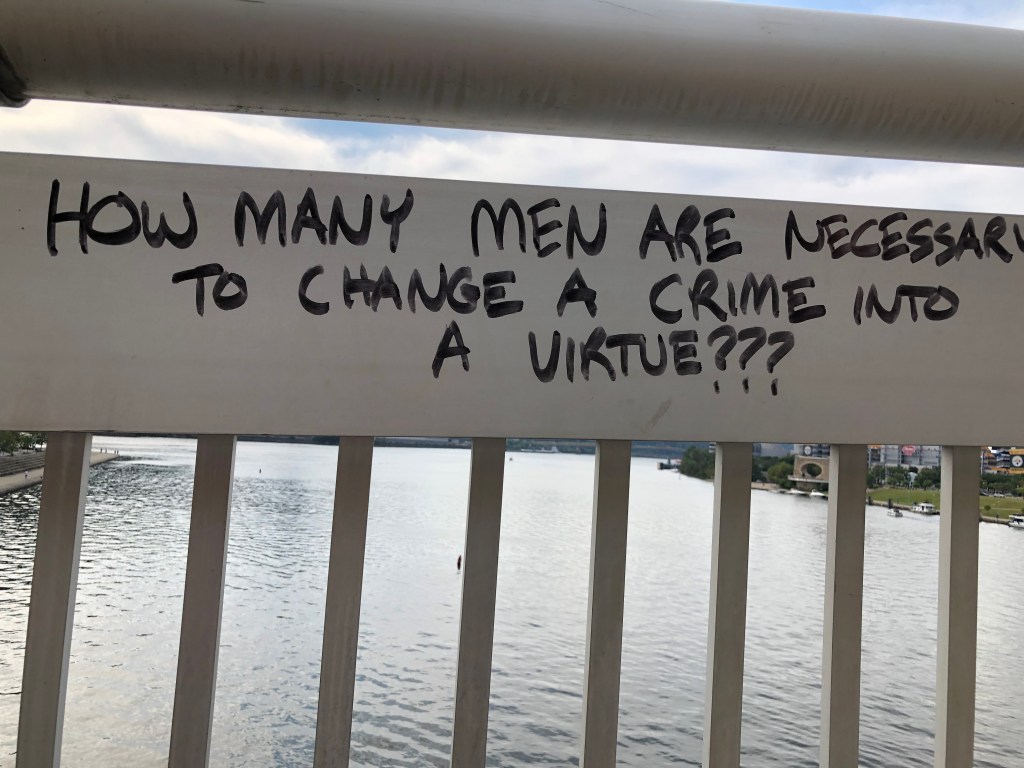 HOW MANY MEN ARE NECESSARY
TO CHANGE A CRIME INTO
A VIRTUE???